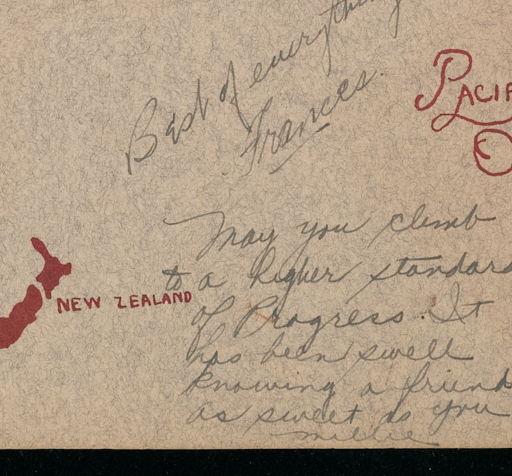 Best of everything
Frances.
PACIF
O
May you climb
to a higher standard
of Progress. It
has been swell
knowing a friend
as sweet as you
Millie
NEW ZEALAND